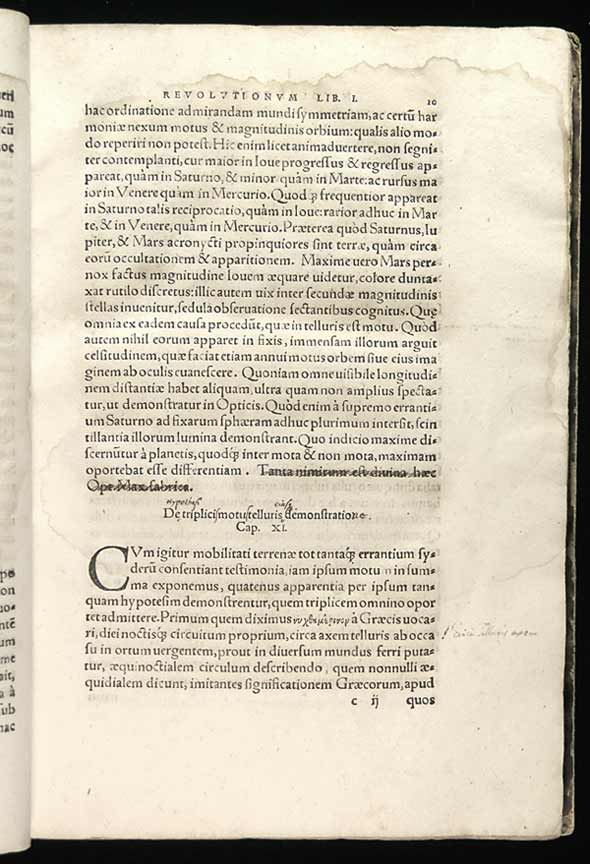 REVOLVTIONVM LIB. I. 10
hac ordinatione admirandam mundi symmetriam, ac certū har
moniæ nexum motus & magnitudinis orbium: qualis alio mo-
do reperiri non potest. Hic enim licet animaduertere, non segni-
ter contemplanti, cur maior in Ioue progressus & regressus ap-
pareat, quàm in Saturno, & minor quàm in Marte: ac rursus ma
ior in Venere quàm in Mercurio. Quodq̃ frequentior appareat
in Saturno talis reciprocatio, quàm in Ioue: rarior adhuc in Mar
te, & in Venere, quàm in Mercurio. Præterea quòd Saturnus, Iu
piter, & Mars acronycti propinquiores sint terræ, quàm circa
eorū occultationem & apparitionem. Maxime uero Mars per-
nox factus magnitudine Iouem æquare uidetur, colore dunta-
xat rutilo discretus: illic autem uix inter secundæ magnitudinis
stellas inuenitur, sedula obseruatione sectantibus cognitus. Quę
omnia ex eadem causa procedūt, quæ in telluris est motu. Quòd
autem nihil eorum apparet in fixis, immensam illorum arguit
celsitudinem, quæ faciat etiam annui motus orbem siue eius ima
ginem ab oculis euanescere. Quoniam omne uisibile longitudi-
nem distantiæ habet aliquam, ultra quam non amplius specta-
tur, ut demonstratur in Opticis. Quòd enim à supremo erranti-
um Saturno ad fixarum sphæram adhuc plurimum intersit, scin
tillantia illorum lumina demonstrant. Quo indicio maxime di-
scernūtur à planetis, quodq̃ inter mota & non mota, maximam
oportebat esse differentiam. Tanta nimirum est diuina hæc
Opt. Max. fabrica.
De triplici motu telluris demonstratione.
Cap. XI.
CVm igitur mobilitati terrenæ tot tantaq̃ errantium sy-
derū consentiant testimonia, iam ipsum motu n in sum-
ma exponemus, quatenus apparentia per ipsum tan-
quam hypotesim demonstrentur, quem triplicem omnino opor
tet admittere. Primum quem diximus νυχθημερινὸν à Græcis uoca-
ri, diei noctisq̃ circuitum proprium, circa axem telluris ab occa
su in ortum uergentem, prout in diuersum mundus ferri puta-
tur, æquinoctialem circulum describendo, quem nonnulli æ-
quidialem dicunt, imitantes significationem Græcorum, apud
c ij quos